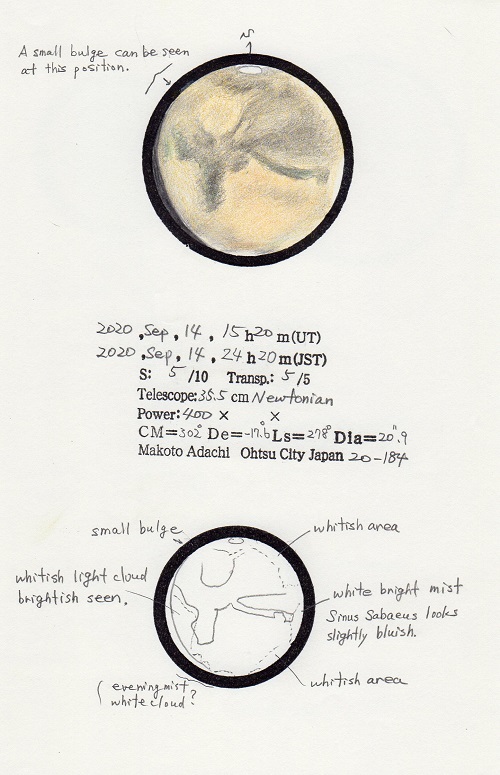 S
A small bulge can be seen
at this position.
2020, Sep, 14, 15 h 20 m (UT)
2020, Sep, 14, 24 h 20 m (JST)
S: 5 /10 Transp.: 5 /5
Telescope: 35.5 cm Newtonian
Power: 400 × ×
CM=302° De=-17.6° Ls=278° Dia=20".9
Makoto Adachi Ohtsu City Japan 20-184
small bulge
whitish area
whitish light cloud
brightish seen.
white bright mist
Sinus Sabaeus looks
slightly bluish.
whitish area
( evening mist
white cloud ?